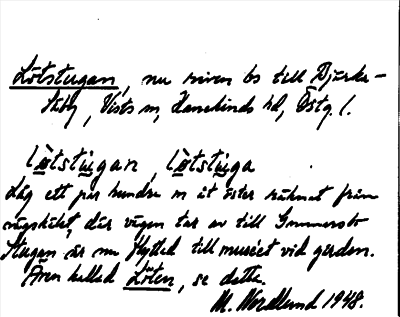 Lötstugan, nu riven bs till Bjärka-
Säby, Vists sn, Hanekinds hd, Östg. l.
lötstugan, lötstuga
Låg ett par hundra m åt öster räknat från
vägskälet, där vägen tar av till Gunnersbo
Stugan är nu flyttad till museet vid gården.
Även kallad Löten, se detta.
M. Nordlund 1948.